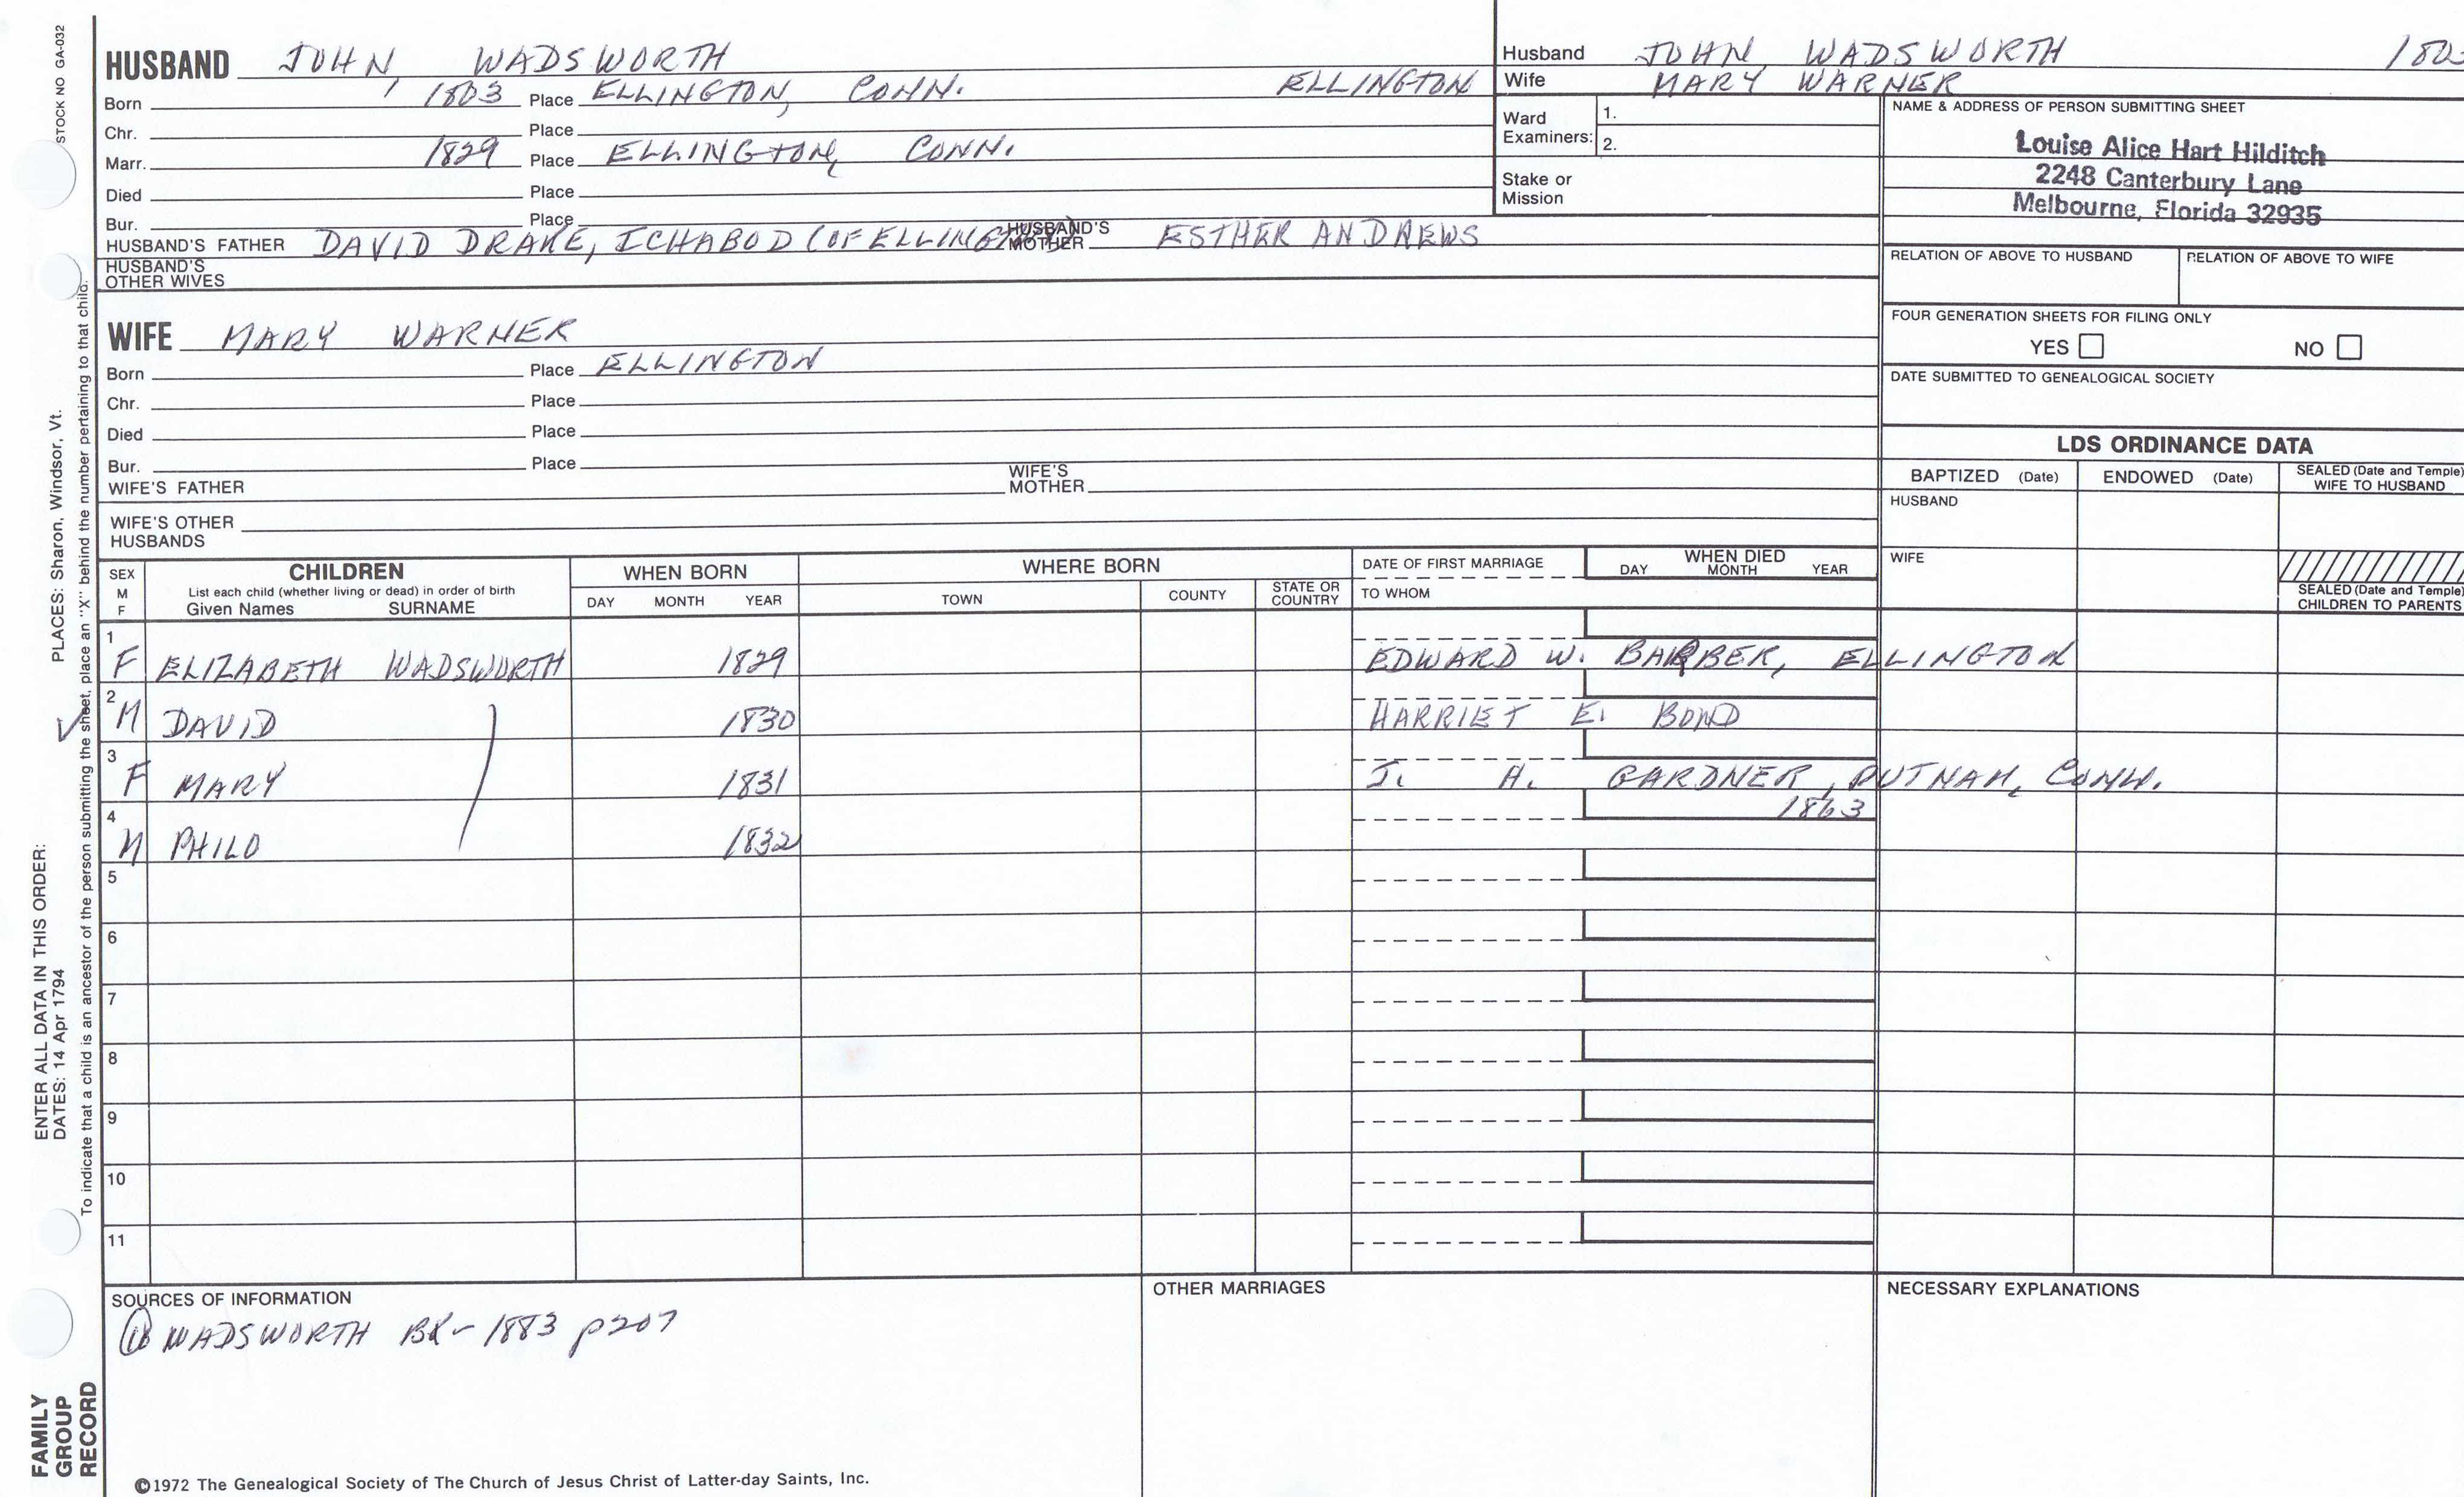 STOCK NO GA-032
PLACES: Sharon, Windsor, Vt.
ENTER ALL DATA IN THIS ORDER:
DATES: 14 Apr 1794
To indicate that a child is an ancestor of the person submitting the sheet, place an "X" behind the number pertaining to that child.
FAMILY GROUP RECORD
HUSBAND JOHN WADSWORTH
Born 1803 Place ELLINGTON, CONN. ELLINGTON
Chr. Place
Marr. 1829 Place ELLINGTON, CONN.
Died Place
Bur. Place
HUSBAND'S FATHER DAVID DRAKE, ICHABOD (OF ELLINGTON) HUSBAND'S MOTHER ESTHER ANDREWS
HUSBAND'S OTHER WIVES
WIFE MARY WARNER
Born Place ELLINGTON
Chr. Place
Died Place
Bur. Place
WIFE'S FATHER WIFE'S MOTHER
WIFE'S OTHER HUSBANDS
Husband JOHN WADSWORTH
Wife MARY WARNER
Ward Examiners: 1.
2.
Stake or Mission
NAME & ADDRESS OF PERSON SUBMITTING SHEET
Louise Alice Hart Hilditch
2248 Canterbury Lane
Melbourne, Florida 32935
RELATION OF ABOVE TO HUSBAND RELATION OF ABOVE TO WIFE
FOUR GENERATION SHEETS FOR FILING ONLY
YES NO
DATE SUBMITTED TO GENEALOGICAL SOCIETY
LDS ORDINANCE DATA
BAPTIZED (Date) ENDOWED (Date) SEALED (Date and Temple) WIFE TO HUSBAND
HUSBAND
WIFE
SEALED (Date and Temple) CHILDREN TO PARENTS
SEX M F
CHILDREN
List each child (whether living or dead) in order of birth
Given Names SURNAME
WHEN BORN
DAY MONTH YEAR
WHERE BORN
TOWN COUNTY STATE OR COUNTRY
DATE OF FIRST MARRIAGE
TO WHOM
WHEN DIED
DAY MONTH YEAR
1 F ELIZABETH WADSWORTH 1829 EDWARD W. BARBER, ELLINGTON
2 M DAVID 1830 HARRIET E. BOND
3 F MARY 1831 J. H. GARDNER, PUTNAM, CONN.
4 M PHILO 1832 1863
5
6
7
8
9
10
11
SOURCES OF INFORMATION
WADSWORTH BK- 1883 p207
OTHER MARRIAGES
NECESSARY EXPLANATIONS
©1972 The Genealogical Society of The Church of Jesus Christ of Latter-day Saints, Inc.